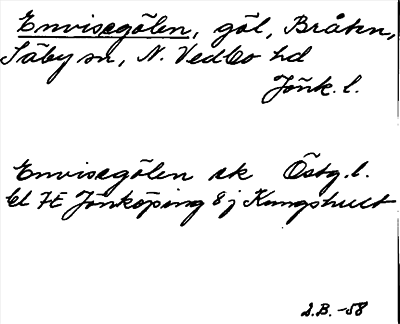 Envisegölen, göl, Bråten,
Säby sn, N. Vedbo hd
Jönk. l.
Envisegölen ek Östg. l.
bl 7E Jönköping 8j Kungshult
S.B. -58